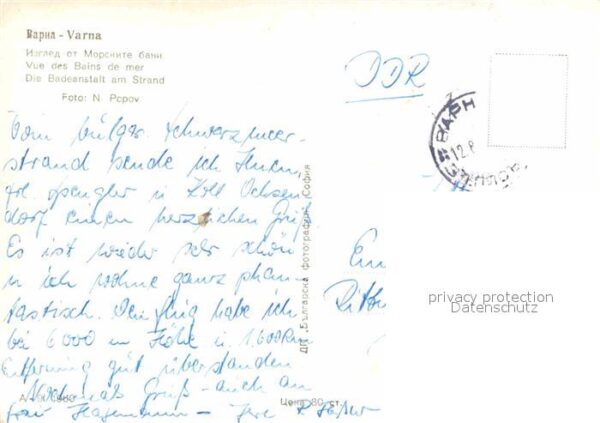 Варна - Varna
Изглед от Морските бани
Vue des Bains de mer
Die Badeanstalt am Strand
Foto: N. Popov
DDR
ВАРН
12.8
Vom bulgar. Schwarzmeer-
strand sende ich Ihnen
Frl. Spengler in
dorf einen herzlichen Gruß
Es ist wieder sehr schön
u ich wohne ganz phan
tastisch. Den Flug habe ich
bei 6000 m Höhe u. 1.600 km
Entfernung gut überstanden
Nochmals Gruß - auch an
Frau Hagemann - Ihre
ДП „Българска фотография" София
Цена 80 ст.
privacy protection
Datenschutz